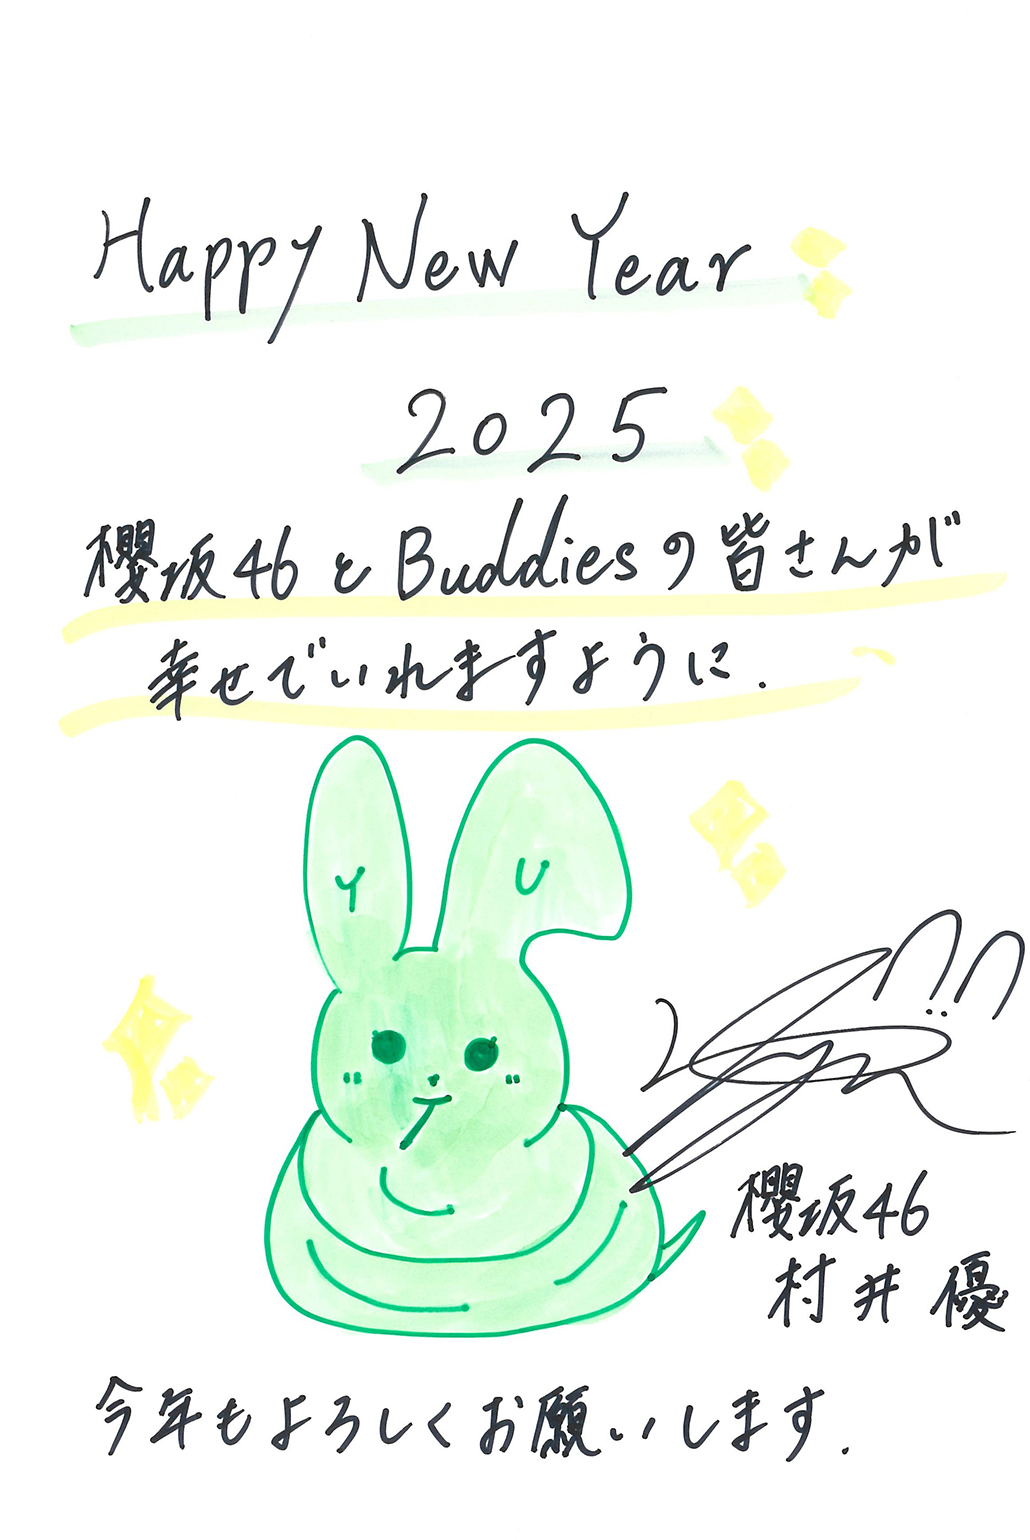 Happy New Year
2025
櫻坂46とBuddiesの皆さんが
幸せでいれますように.
Y U
櫻坂46
村井 優
今年もよろしくお願いします.